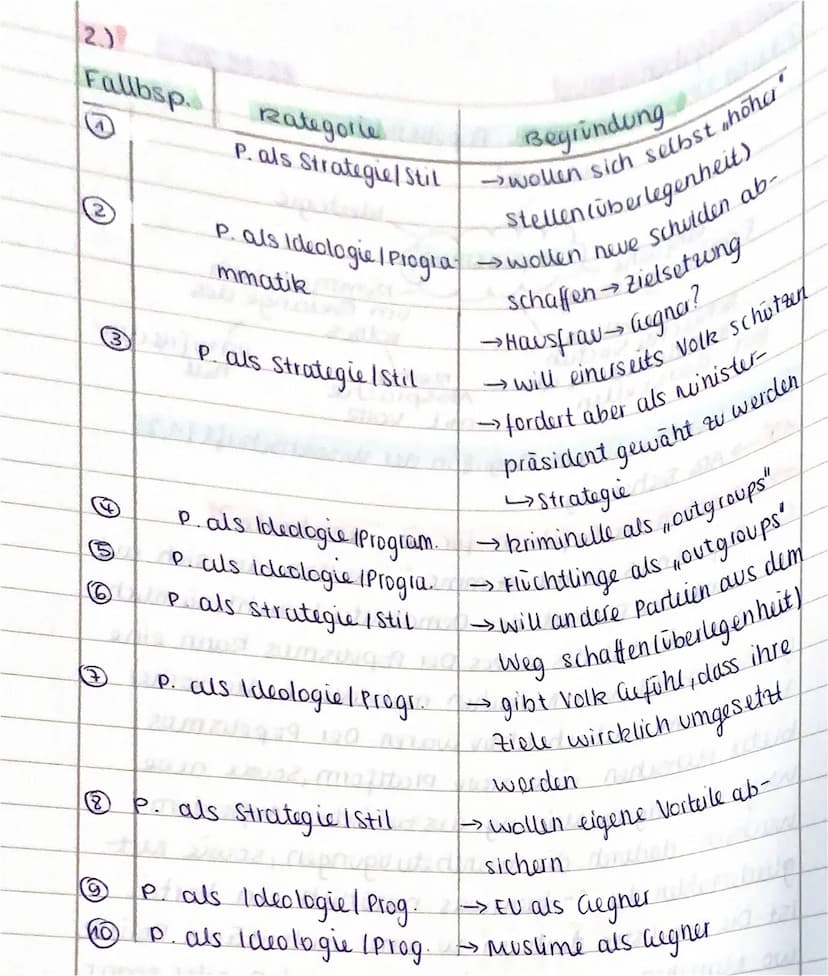 2.)
Fallbsp. Kategorie Begründung
① P. als Strategie/Stil →wollen sich selbst „höher"
stellen (überlegenheit)
② P. als Ideologie/Progra- →wollen neue Schulden ab-
mmatik schaffen → Zielsetzung
→Hausfrau→ Gegner?
③ P. als Strategie/Stil → will einerseits Volk schützen
→ fordert aber als Minister-
präsident gewäht zu werden
↳ Strategie
④ P. als Ideologie/Program. → kriminelle als „outgroups"
⑤ P. als Ideologie/Progra. → Flüchtlinge als „outgroups"
⑥ P. als Strategie/Stil →will andere Parteien aus dem
Weg schaffen (überlegenheit)
⑦ P. als Ideologie/Progr. → gibt Volk Gefühl, dass ihre
Ziele wircklich umgesetzt
werden
⑧ P. als Strategie/Stil → wollen eigene Vorteile ab-
sichern
⑨ P. als Ideologie/Prog. → EU als Gegner
⑩ P. als Ideologie/Prog. → Muslime als Gegner